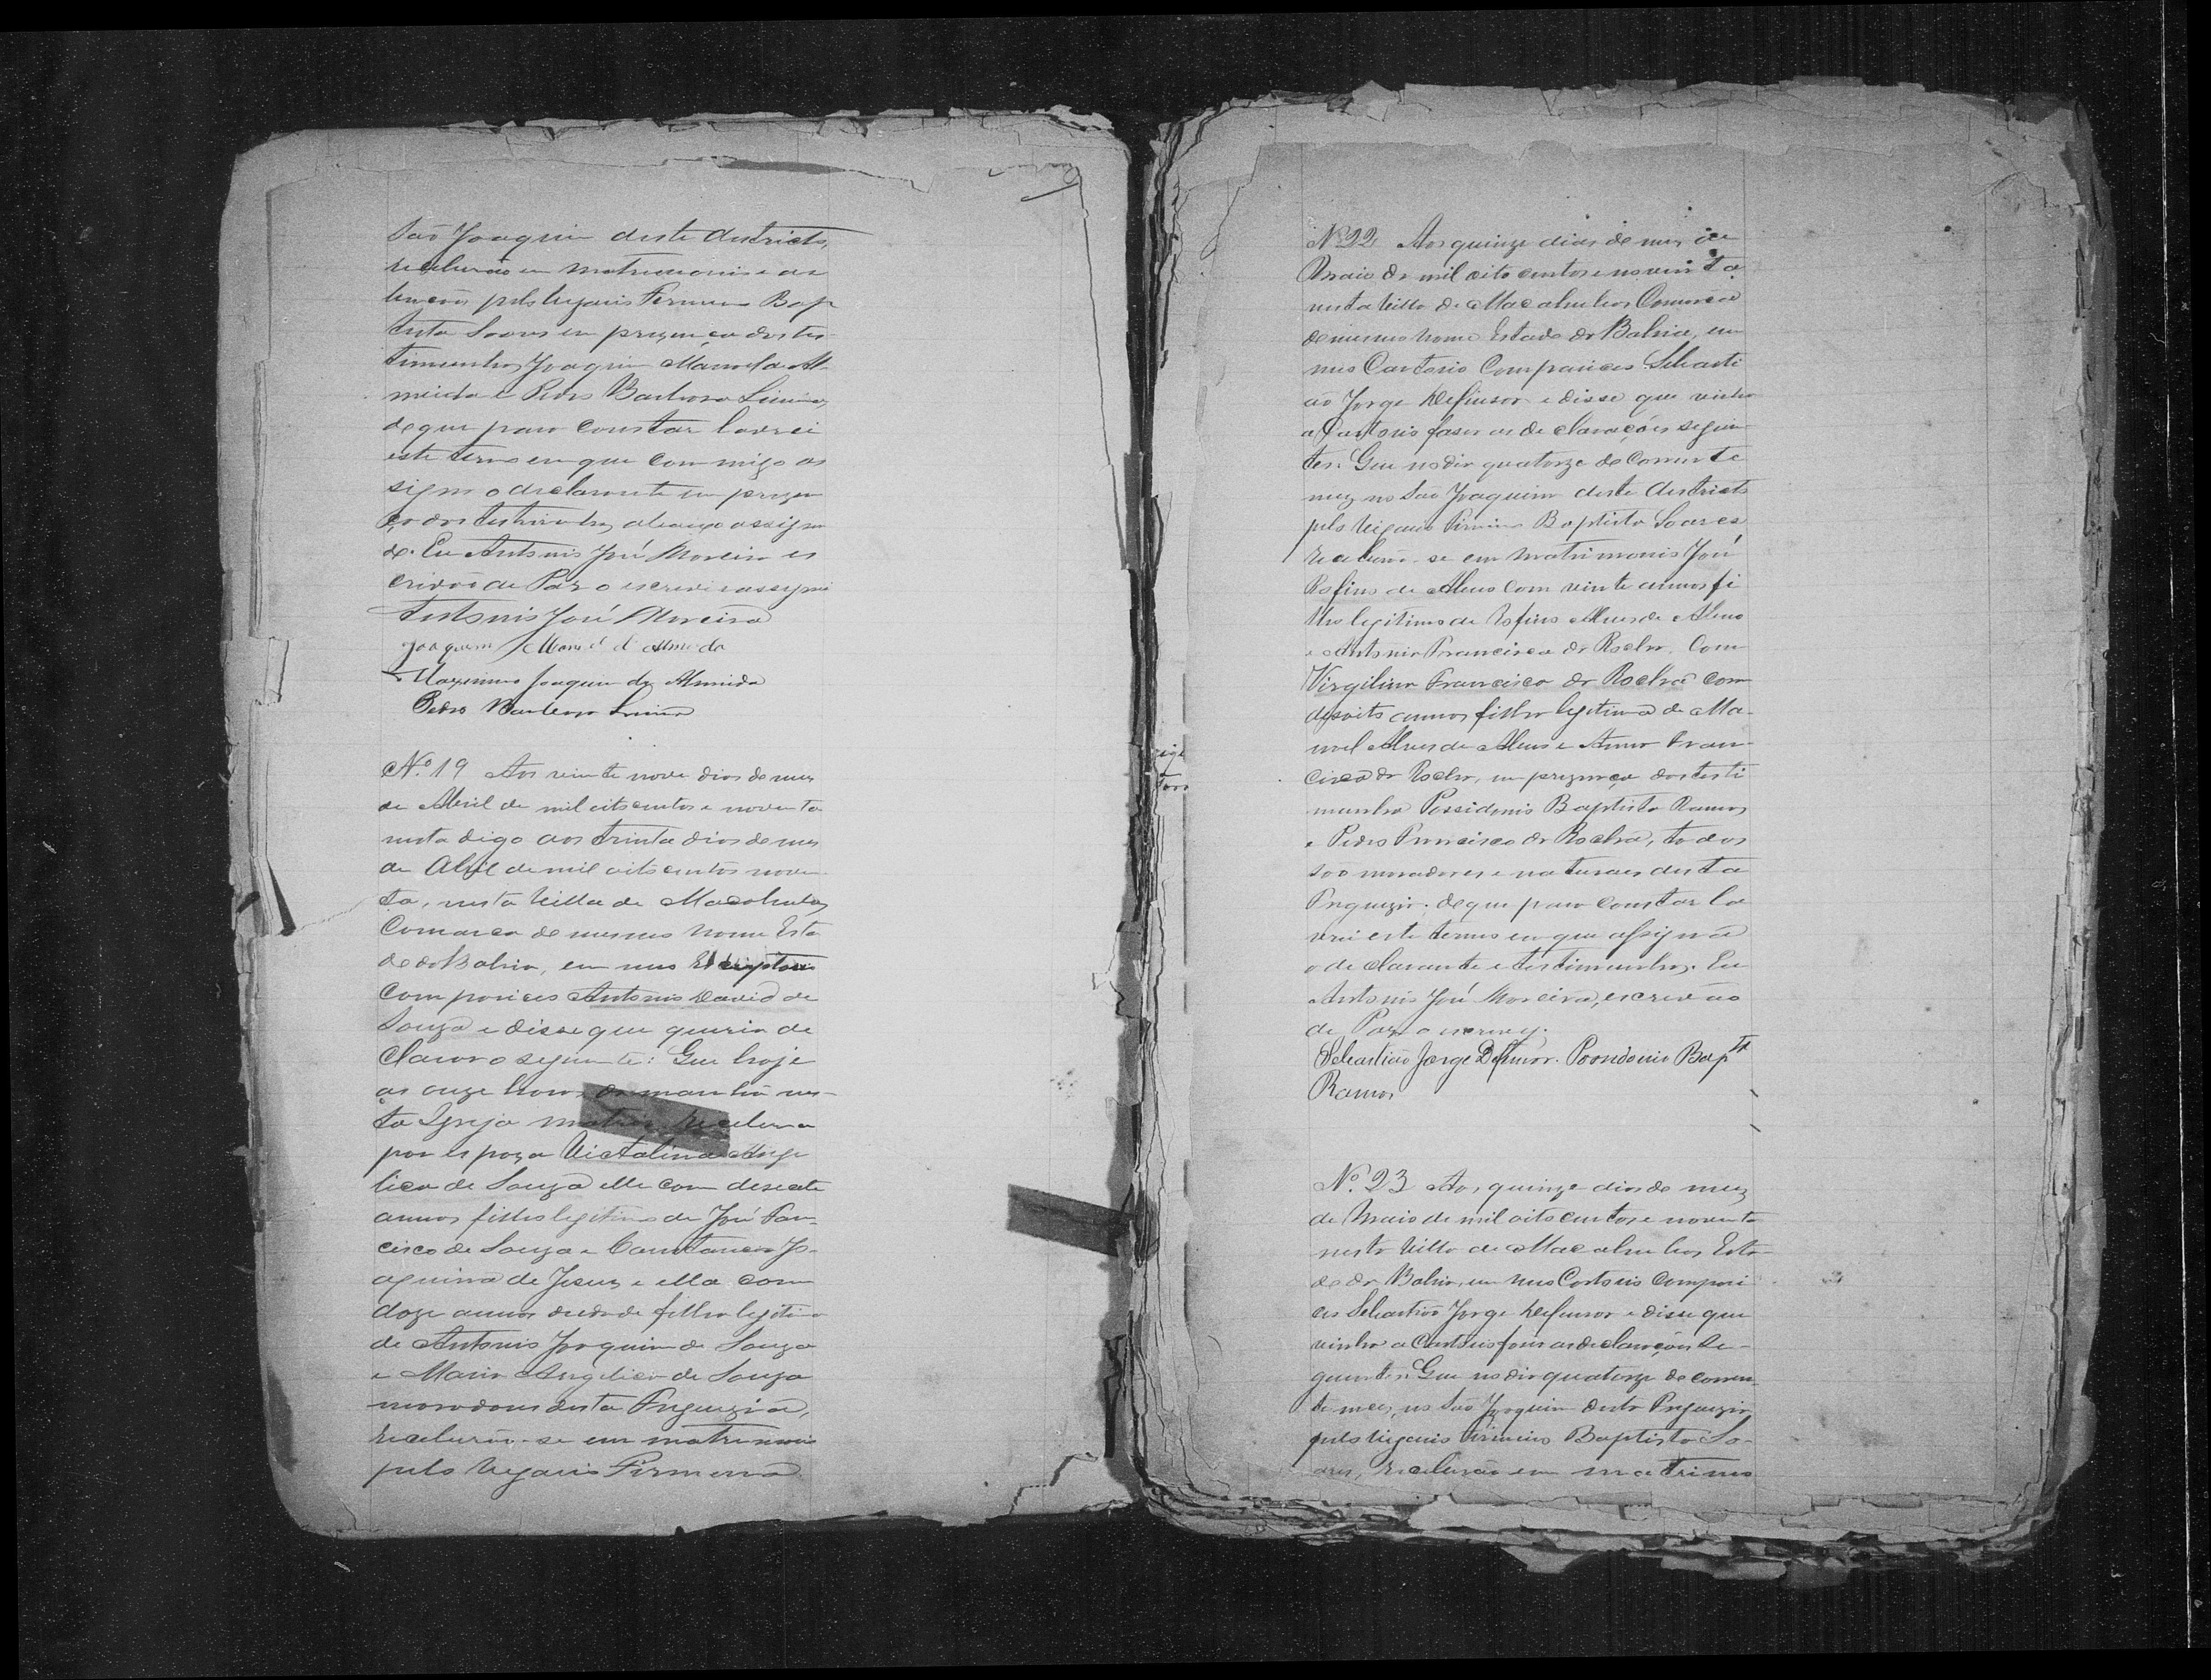 São Joaquim deste districto,
receberão em matrimonio e as
bençãos pelo Vigario Firmino Bap
tista Soares em prezença das tes
timunhas Joaquim Manoel de Al
meida e Pedro Barboza
de que para constar lavrei
este termo em que commigo as
signa o declarante em prezen
ça das testimunhas abaixo assigna
do. Eu Antonio José Moreira es
crivão de Paz o escrevi e assignei
Antonio José Moreira
Joaquim Manoel d'Almeida
Maximino Joaquim de Almeida
Pedro Barboza
Nº 19 Aos vinte nove dias do mez
de Abril de mil oitocentos e noventa
nesta digo aos trinta dias do mez
de Abril de mil oitocentos noven
ta, nesta Villa de Macahubas
Comarca do mesmo nome Esta
do da Bahia, em meo Escriptorio
compariceo Antonio David de
Souza e disse que queria de
clarar o seguinte: Que hoje
as onze horas da manhã nes-
ta Igreja matriz recebera
por espoza Victalina Ange
lica de Souza elle com desecete
annos filho legitimo de José Fran
cisco de Souza e Constancia Jo-
aquina de Jesus e ella com
doze annos de idade filha legitima
de Antonio Joaquim de Souza
e Maria Angelica de Souza
moradores desta Freguezia,
receberão-se em matrimonio
pelo Vigario Firmino
Nº 22 Aos quinze dias do mez de
Maio de mil oito centos e noventa
nesta Villa de Macahubas Comarca
do mesmo nome Estado da Bahia, em
meo Cartorio Compariceo Sebasti
ão Jorge Defensor e disse que vinha
a Cartorio faser as declarações seguin
tes: Que no dia quatorze do Corrente
mez no São Joaquim deste districto
pelo Vigario Firmino Baptista Soares
receberão-se em matrimonio José
Rofino de Aleus com vinte annos fi
lho legitimo de Rofino Alves de Aleus
e Antonia Francisca da Rocha. Com
Virgilina Francisca da Rocha com
desoito annos filha legitima de Ma-
noel Alves de Aleus e Anna Fran-
cisca da Rocha, em prezença das testi
munhas Possidonio Baptista Ramos
e Pedro Francisco da Rocha, todos
são moradores e naturaes desta
Freguezia: de que para constar la
vrei este termo em que assignão
o declarante e testimunhas. Eu
Antonio José Moreira, escrivão
de Paz o escrevy.
Sebastião Jorge Defensor. Possidonio Bapta
Ramos
Nº. 23 Aos quinze dias do mez
de Maio de mil oitocentos e noventa
nesta Villa de Macahubas Esta-
do da Bahia, em meo Cartorio compari
ceo Sebastião Jorge Defensor e disse que
vinha a Cartorio faser as declarações se-
guintes: Que no dia quatorze do corren
te mez, no São Joaquim desta Freguezia
pelo Vigario Firmino Baptista So-
ares, receberão em matrimo